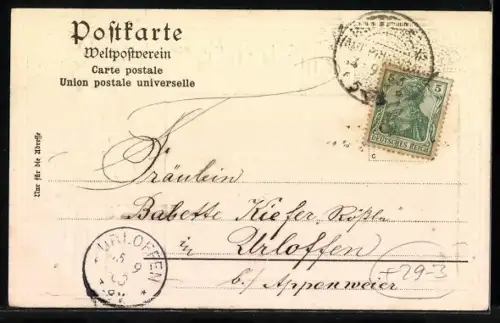 Postkarte
Weltpostverein
Carte postale
Union postale universelle
Nur für die Adresse
5
DEUTSCHES REICH
Fräulein
Babette Kiefer, Rößle
in
Urloffen
b/ Appenweier
URLOFFEN
+29-3